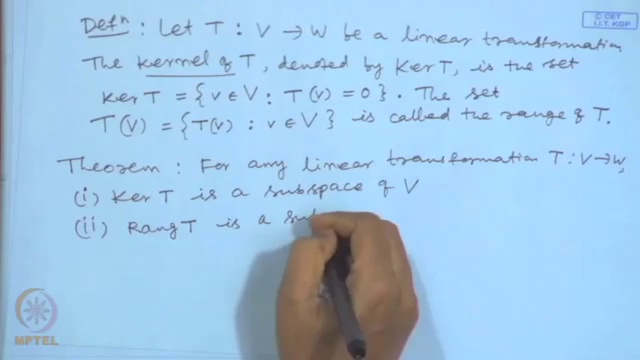 © CET
I.I.T. KGP
Defⁿ : Let T : V → W be a linear transformation
The Kernel of T, denoted by Ker T, is the set
Ker T = {v ∈ V : T(v) = 0}. The set
T(V) = {T(v) : v ∈ V} is called the range of T.
Theorem : For any linear transformation T : V → W,
(i) Ker T is a subspace of V
(ii) Rang T is a sub
NPTEL